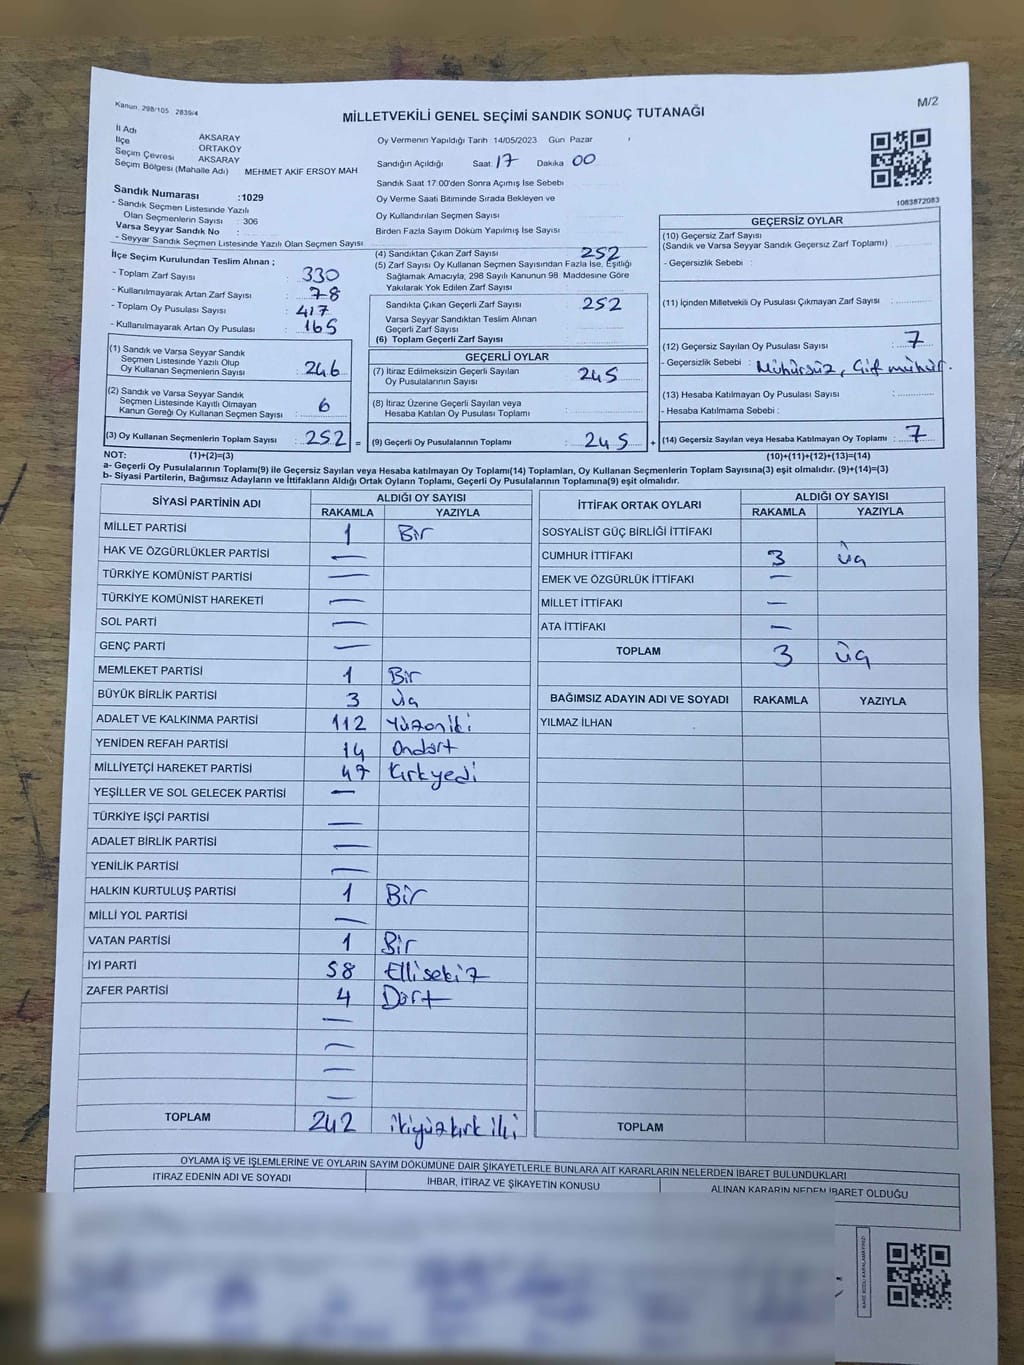 Kanun: 298/105 2839/4
M/2
MİLLETVEKİLİ GENEL SEÇİMİ SANDIK SONUÇ TUTANAĞI
İl Adı AKSARAY
İlçe ORTAKÖY
Seçim Çevresi AKSARAY
Seçim Bölgesi (Mahalle Adı) MEHMET AKİF ERSOY MAH
Oy Vermenin Yapıldığı Tarih 14/05/2023 Gün Pazar
Sandığın Açıldığı Saat 17 Dakika 00
Sandık Saat 17:00'den Sonra Açımış İse Sebebi
Oy Verme Saati Bitiminde Sırada Bekleyen ve
Oy Kullandırılan Seçmen Sayısı
Birden Fazla Sayım Döküm Yapılmış İse Sayısı
1083872083
Sandık Numarası :1029
- Sandık Seçmen Listesinde Yazılı
Olan Seçmenlerin Sayısı : 306
Varsa Seyyar Sandık No :
- Seyyar Sandık Seçmen Listesinde Yazılı Olan Seçmen Sayısı
İlçe Seçim Kurulundan Teslim Alınan ;
- Toplam Zarf Sayısı : 330
- Kullanılmayarak Artan Zarf Sayısı : 78
- Toplam Oy Pusulası Sayısı : 417
- Kullanılmayarak Artan Oy Pusulası : 165
(1) Sandık ve Varsa Seyyar Sandık
Seçmen Listesinde Yazılı Olup
Oy Kullanan Seçmenlerin Sayısı : 246
(2) Sandık ve Varsa Seyyar Sandık
Seçmen Listesinde Kayıtlı Olmayan
Kanun Gereği Oy Kullanan Seçmen Sayısı : 6
(3) Oy Kullanan Seçmenlerin Toplam Sayısı : 252 =
(4) Sandıktan Çıkan Zarf Sayısı 252
(5) Zarf Sayısı Oy Kullanan Seçmen Sayısından Fazla İse, Eşitliği
Sağlamak Amacıyla; 298 Sayılı Kanunun 98 Maddesine Göre
Yakılarak Yok Edilen Zarf Sayısı :
Sandıkta Çıkan Geçerli Zarf Sayısı : 252
Varsa Seyyar Sandıktan Teslim Alınan
Geçerli Zarf Sayısı :
(6) Toplam Geçerli Zarf Sayısı :
GEÇERLİ OYLAR
(7) İtiraz Edilmeksizin Geçerli Sayılan
Oy Pusulalarının Sayısı : 245
(8) İtiraz Üzerine Geçerli Sayılan veya
Hesaba Katılan Oy Pusulası Toplamı :
(9) Geçerli Oy Pusulalarının Toplamı : 245 +
GEÇERSİZ OYLAR
(10) Geçersiz Zarf Sayısı
(Sandık ve Varsa Seyyar Sandık Geçersiz Zarf Toplamı) :
- Geçersizlik Sebebi :
(11) İçinden Milletvekili Oy Pusulası Çıkmayan Zarf Sayısı :
(12) Geçersiz Sayılan Oy Pusulası Sayısı : 7
- Geçersizlik Sebebi : Mühürsüz, Çift mühür.
(13) Hesaba Katılmayan Oy Pusulası Sayısı :
- Hesaba Katılmama Sebebi :
(14) Geçersiz Sayılan veya Hesaba Katılmayan Oy Toplamı : 7
NOT: (1)+(2)=(3)
(10)+(11)+(12)+(13)=(14)
a- Geçerli Oy Pusulalarının Toplamı(9) ile Geçersiz Sayılan veya Hesaba katılmayan Oy Toplamı(14) Toplamları, Oy Kullanan Seçmenlerin Toplam Sayısına(3) eşit olmalıdır. (9)+(14)=(3)
b- Siyasi Partilerin, Bağımsız Adayların ve İttifakların Aldığı Ortak Oyların Toplamı, Geçerli Oy Pusulalarının Toplamına(9) eşit olmalıdır.
SİYASİ PARTİNİN ADI ALDIĞI OY SAYISI
RAKAMLA YAZIYLA
MİLLET PARTİSİ 1 Bir
HAK VE ÖZGÜRLÜKLER PARTİSİ —
TÜRKİYE KOMÜNİST PARTİSİ —
TÜRKİYE KOMÜNİST HAREKETİ —
SOL PARTİ —
GENÇ PARTİ —
MEMLEKET PARTİSİ 1 Bir
BÜYÜK BİRLİK PARTİSİ 3 Üç
ADALET VE KALKINMA PARTİSİ 112 Yüzoniki
YENİDEN REFAH PARTİSİ 14 Ondört
MİLLİYETÇİ HAREKET PARTİSİ 47 Kırkyedi
YEŞİLLER VE SOL GELECEK PARTİSİ —
TÜRKİYE İŞÇİ PARTİSİ —
ADALET BİRLİK PARTİSİ —
YENİLİK PARTİSİ —
HALKIN KURTULUŞ PARTİSİ 1 Bir
MİLLİ YOL PARTİSİ —
VATAN PARTİSİ 1 Bir
İYİ PARTİ 58 Ellisekiz
ZAFER PARTİSİ 4 Dört
—
—
—
—
TOPLAM 242 ikiyüzkırk iki
İTTİFAK ORTAK OYLARI ALDIĞI OY SAYISI
RAKAMLA YAZIYLA
SOSYALİST GÜÇ BİRLİĞİ İTTİFAKI
CUMHUR İTTİFAKI 3 üç
EMEK VE ÖZGÜRLÜK İTTİFAKI —
MİLLET İTTİFAKI —
ATA İTTİFAKI —
TOPLAM 3 üç
BAĞIMSIZ ADAYIN ADI VE SOYADI RAKAMLA YAZIYLA
YILMAZ İLHAN
TOPLAM
OYLAMA İŞ VE İŞLEMLERİNE VE OYLARIN SAYIM DÖKÜMÜNE DAİR ŞİKAYETLERLE BUNLARA AİT KARARLARIN NELERDEN İBARET BULUNDUKLARI
İTİRAZ EDENİN ADI VE SOYADI İHBAR, İTİRAZ VE ŞİKAYETİN KONUSU ALINAN KARARIN NEDEN İBARET OLDUĞU
KARE KODU KARALAMAYINIZ!